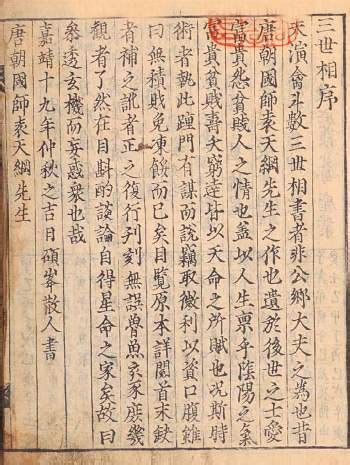 三世相序
夫演禽斗數三世相書者非公卿大夫之為也昔
唐朝國師袁天綱先生之作也遺於後世之士愛
富貴怨貧賤人之情也蓋以人生稟乎陰陽之氣
富貴貧賤壽夭窮達皆以天命之所賦也況斯時
術者執此踵門有謀而說竊取微利以資口腹雖
曰無積賎免凍餒而已矣目覽原本詳閱首末缺
者補之訛者正之復行刋刻無誤魯魚亥豕庶幾
觀者了然在目斟酌談論自得星命之家矣故曰
參透玄機而妄惑衆也哉
嘉靖十九年仲秋之吉日碩峯散人書
唐朝國師袁天綱先生